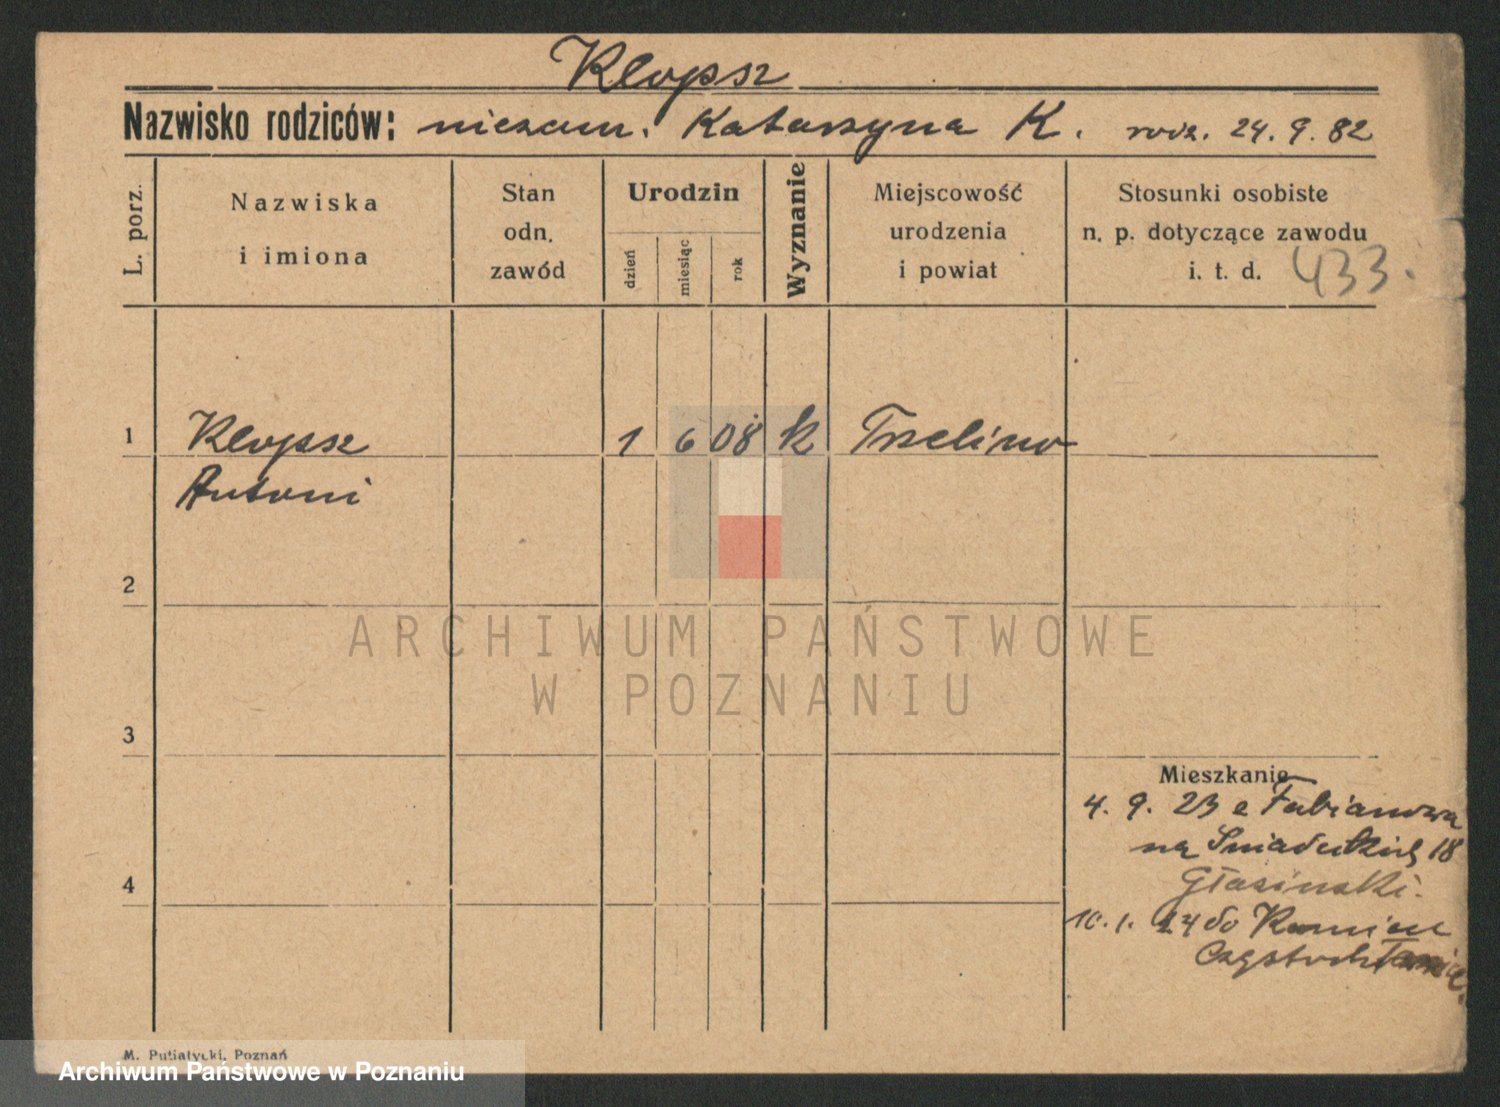 Klopsz
Nazwisko rodziców: niezam. Katarzyna K. rodz. 24. 9. 82
L. porz.
Nazwiska
i imiona
Stan
odn.
zawód
Urodzin
dzień
miesiąc
rok
Wyznanie
Miejscowość
urodzenia
i powiat
Stosunki osobiste
n. p. dotyczące zawodu
i. t. d. 433.
1 Klopsz 1 6 08 k
Antoni
2
ARCHIWUM PAŃSTWOWE
W POZNANIU
3
Mieszkanie
4. 9. 23 z Fabianowa
na Śniadeckich 18
4
Głasinski.
10. 1. 24 do Kamień
M. Putiatycki, Poznań
Archiwum Państwowe w Poznaniu